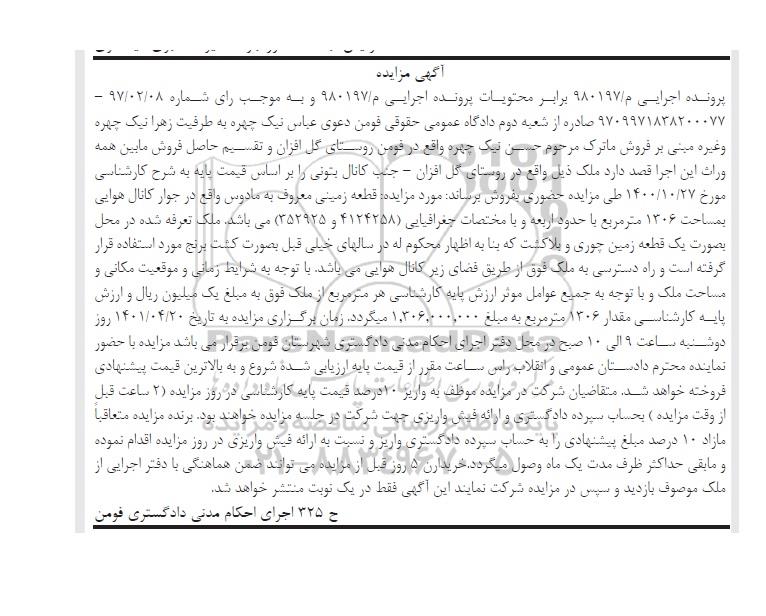 آگهی مزایده
پرونده اجرایی م/۹۸۰۱۹۷ برابر محتویات پرونده اجرایی م/۹۸۰۱۹۷ و به موجب رای شماره ۹۷/۰۲/۰۸ –
۹۷۰۹۹۷۱۸۳۸۲۰۰۰۷۷ صادره از شعبه دوم دادگاه عمومی حقوقی فومن دعوی عباس نیک چهره به طرفیت زهرا نیک چهره
وغیره مبنی بر فروش ماترک مرحوم حسن نیک چهره واقع در فومن روستای گل افزان و تقسیم حاصل فروش مابین همه
وراث این اجرا قصد دارد ملک ذیل واقع در روستای گل افزان – جنب کانال بتونی را بر اساس قیمت پایه به شرح کارشناسی
مورخ ۱۴۰۰/۱۰/۲۷ طی مزایده حضوری بفروش برساند: مورد مزایده: قطعه زمینی معروف به مادوس واقع در جوار کانال هوایی
بمساحت ۱۳۰۶ مترمربع با حدود اربعه و با مختصات جغرافیایی (۴۱۲۴۲۵۸ و ۳۵۲۹۲۵) می باشد. ملک تعرفه شده در محل
بصورت یک قطعه زمین چوری و بلاکشت که بنا به اظهار محکوم له در سالهای خیلی قبل بصورت کشت برنج مورد استفاده قرار
گرفته است و راه دسترسی به ملک فوق از طریق فضای زیر کانال هوایی می باشد. با توجه به شرایط زمانی و موقعیت مکانی و
مساحت ملک و با توجه به جمیع عوامل موثر ارزش پایه کارشناسی هر مترمربع از ملک فوق به مبلغ یک میلیون ریال و ارزش
پایه کارشناسی مقدار ۱۳۰۶ مترمربع به مبلغ ۱,۳۰۶,۰۰۰,۰۰۰ میگردد. زمان برگزاری مزایده به تاریخ ۱۴۰۱/۰۴/۲۰ روز
دوشنبه ساعت ۹ الی ۱۰ صبح در محل دفتر اجرای احکام مدنی دادگستری شهرستان فومن برقرار می باشد مزایده با حضور
نماینده محترم دادستان عمومی و انقلاب راس ساعت مقرر از قیمت پایه ارزیابی شده شروع و به بالاترین قیمت پیشنهادی
فروخته خواهد شد. متقاضیان شرکت در مزایده موظف به واریز ۱۰درصد قیمت پایه کارشناسی در روز مزایده (۲ ساعت قبل
از وقت مزایده ) بحساب سپرده دادگستری و ارائه فیش واریزی جهت شرکت در جلسه مزایده خواهند بود. برنده مزایده متعاقباً
مازاد ۱۰ درصد مبلغ پیشنهادی را به حساب سپرده دادگستری واریز و نسبت به ارائه فیش واریزی در روز مزایده اقدام نموده
و مابقی حداکثر ظرف مدت یک ماه وصول میگردد.خریدارن ۵ روز قبل از مزایده می توانند ضمن هماهنگی با دفتر اجرایی از
ملک موصوف بازدید و سپس در مزایده شرکت نمایند این آگهی فقط در یک نوبت منتشر خواهد شد.
ح ۳۲۵ اجرای احکام مدنی دادگستری فومن
ParsNamadData
پایگاه اطلاع رسانی مناقصه و مزایده
۰۲۱-۸۸۳۴۹۶۷۰-۵